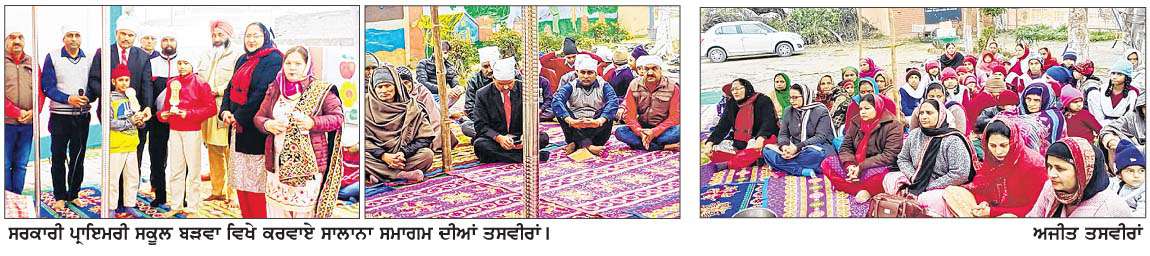 ਸਰਕਾਰੀ ਪ੍ਰਾਇਮਰੀ ਸਕੂਲ ਬੜਵਾ ਵਿਖੇ ਕਰਵਾਏ ਸਾਲਾਨਾ ਸਮਾਗਮ ਦੀਆਂ ਤਸਵੀਰਾਂ। ਅਜੀਤ ਤਸਵੀਰਾਂ